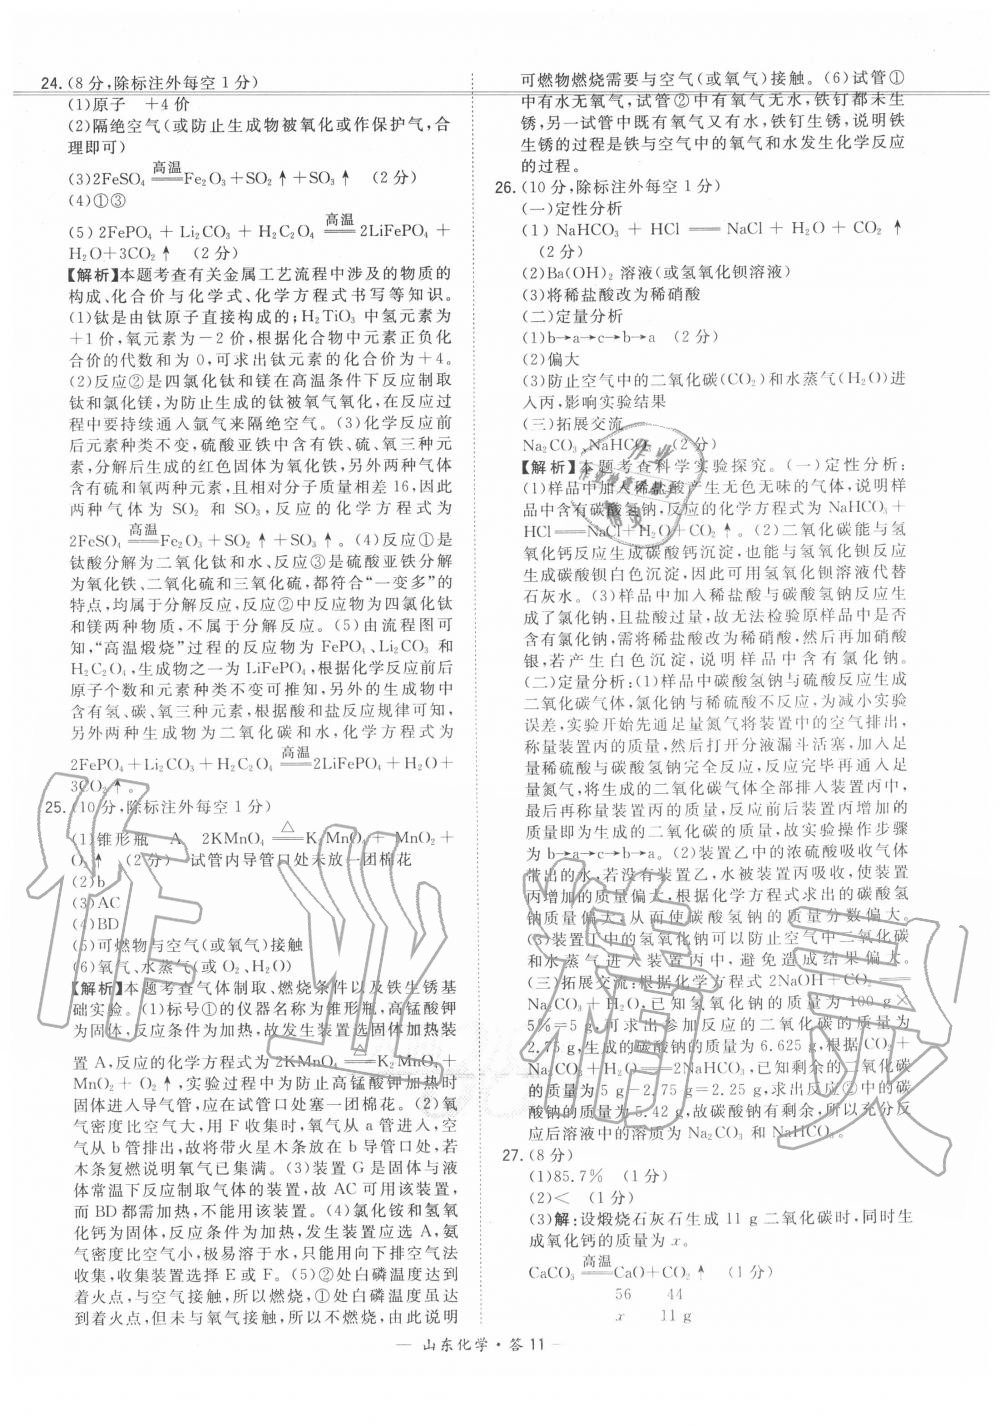 24. (8分,除标注外每空1分)
(1)原子　+4价
(2)隔绝空气(或防止生成物被氧化或作保护气,合
理即可)
(3)2FeSO₄ 高温═══ Fe₂O₃+SO₂↑+SO₃↑　(2分)
(4)①③
(5) 2FePO₄ + Li₂CO₃ + H₂C₂O₄ 高温═══ 2LiFePO₄ +
H₂O+3CO₂↑　(2分)
【解析】本题考查有关金属工艺流程中涉及的物质的
构成、化合价与化学式、化学方程式书写等知识。
(1)钛是由钛原子直接构成的;H₂TiO₃ 中氢元素为
+1价,氧元素为-2价,根据化合物中元素正负化
合价的代数和为0,可求出钛元素的化合价为+4。
(2)反应②是四氯化钛和镁在高温条件下反应制取
钛和氯化镁,为防止生成的钛被氧气氧化,在反应过
程中要持续通入氩气来隔绝空气。(3)化学反应前
后元素种类不变,硫酸亚铁中含有铁、硫、氧三种元
素,分解后生成的红色固体为氧化铁,另外两种气体
含有硫和氧两种元素,且相对分子质量相差16,因此
两种气体为 SO₂ 和 SO₃,反应的化学方程式为
2FeSO₄ 高温═══ Fe₂O₃+SO₂↑+SO₃↑。(4)反应①是
钛酸分解为二氧化钛和水、反应③是硫酸亚铁分解
为氧化铁、二氧化硫和三氧化硫,都符合“一变多”的
特点,均属于分解反应,反应②中反应物为四氯化钛
和镁两种物质,不属于分解反应。(5)由流程图可
知,“高温煅烧”过程的反应物为 FePO₄、Li₂CO₃ 和
H₂C₂O₄,生成物之一为 LiFePO₄,根据化学反应前后
原子个数和元素种类不变可推知,另外的生成物中
含有氢、碳、氧三种元素,根据酸和盐反应规律可知,
另外两种生成物为二氧化碳和水,化学方程式为
2FePO₄+Li₂CO₃+H₂C₂O₄ 高温═══ 2LiFePO₄+H₂O+
3CO₂↑。
25. (10分,除标注外每空1分)
(1)锥形瓶　A　2KMnO₄ △═══ K₂MnO₄ + MnO₂ +
O₂↑　(2分)　试管内导管口处未放一团棉花
(2)b
(3)AC
(4)BD
(5)可燃物与空气(或氧气)接触
(6)氧气、水蒸气(或O₂、H₂O)
【解析】本题考查气体制取、燃烧条件以及铁生锈基
础实验。(1)标号①的仪器名称为锥形瓶,高锰酸钾
为固体,反应条件为加热,故发生装置选固体加热装
置A,反应的化学方程式为 2KMnO₄ △═══ K₂MnO₄ +
MnO₂ + O₂↑,实验过程中为防止高锰酸钾加热时
固体进入导气管,应在试管口处塞一团棉花。(2)氧
气密度比空气大,用F收集时,氧气从a管进入,空
气从b管排出,故将带火星木条放在b导管口处,若
木条复燃说明氧气已集满。(3)装置G是固体与液
体常温下反应制取气体的装置,故AC可用该装置,
而BD都需加热,不能用该装置。(4)氯化铵和氢氧
化钙为固体,反应条件为加热,发生装置应选A,氨
气密度比空气小,极易溶于水,只能用向下排空气法
收集,收集装置选择E或F。(5)②处白磷温度达到
着火点,与空气接触,所以燃烧,①处白磷温度虽达
到着火点,但未与氧气接触,所以不燃烧,由此说明
可燃物燃烧需要与空气(或氧气)接触。(6)试管①
中有水无氧气,试管②中有氧气无水,铁钉都未生
锈,另一试管中既有氧气又有水,铁钉生锈,说明铁
生锈的过程是铁与空气中的氧气和水发生化学反应
的过程。
26. (10分,除标注外每空1分)
(一)定性分析
(1) NaHCO₃ + HCl ═══ NaCl + H₂O + CO₂↑
(2分)
(2)Ba(OH)₂ 溶液(或氢氧化钡溶液)
(3)将稀盐酸改为稀硝酸
(二)定量分析
(1)b→a→c→b→a　(2分)
(2)偏大
(3)防止空气中的二氧化碳(CO₂)和水蒸气(H₂O)进
入丙,影响实验结果
(三)拓展交流
Na₂CO₃、NaHCO₃　(2分)
【解析】本题考查科学实验探究。(一)定性分析:
(1)样品中加入稀盐酸产生无色无味的气体,说明样
品中含有碳酸氢钠,反应的化学方程式为NaHCO₃+
HCl═══NaCl+H₂O+CO₂↑。(2)二氧化碳能与氢
氧化钙反应生成碳酸钙沉淀,也能与氢氧化钡反应
生成碳酸钡白色沉淀,因此可用氢氧化钡溶液代替
石灰水。(3)样品中加入稀盐酸与碳酸氢钠反应生
成了氯化钠,且盐酸过量,故无法检验原样品中是否
含有氯化钠,需将稀盐酸改为稀硝酸,然后再加硝酸
银,若产生白色沉淀,说明样品中含有氯化钠。
(二)定量分析:(1)样品中碳酸氢钠与硫酸反应生成
二氧化碳气体,氯化钠与稀硫酸不反应,为减小实验
误差,实验开始先通足量氮气将装置中的空气排出,
称量装置丙的质量,然后打开分液漏斗活塞,加入足
量稀硫酸与碳酸氢钠完全反应,反应完毕再通入足
量氮气,将生成的二氧化碳气体全部排入装置丙中,
最后再称量装置丙的质量,反应前后装置丙增加的
质量即为生成的二氧化碳的质量,故实验操作步骤
为b→a→c→b→a。(2)装置乙中的浓硫酸吸收气体
带出的水,若没有装置乙,水被装置丙吸收,使装置
丙增加的质量偏大,根据化学方程式求出的碳酸氢
钠质量偏大,从而使碳酸氢钠的质量分数偏大。
(3)装置丁中的氢氧化钠可以防止空气中二氧化碳
和水蒸气进入装置丙中,避免造成结果偏大。
(三)拓展交流:根据化学方程式 2NaOH + CO₂ ═══
Na₂CO₃+H₂O,已知氢氧化钠的质量为100 g×
5%=5 g,可求出参加反应的二氧化碳的质量为
2.75 g,生成的碳酸钠的质量为6.625 g;根据CO₂+
Na₂CO₃+H₂O═══2NaHCO₃,已知剩余的二氧化碳
的质量为5 g-2.75 g=2.25 g,求出反应②中的碳
酸钠的质量为5.42 g,故碳酸钠有剩余,所以充分反
应后溶液中的溶质为Na₂CO₃和NaHCO₃。
27. (8分)
(1)85.7%　(1分)
(2)<　(1分)
(3)解:设煅烧石灰石生成11 g二氧化碳时,同时生
成氧化钙的质量为x。
CaCO₃ 高温═══ CaO+CO₂↑　(1分)
56　44
x　11 g
— 山东化学·答 11 —
作业精灵